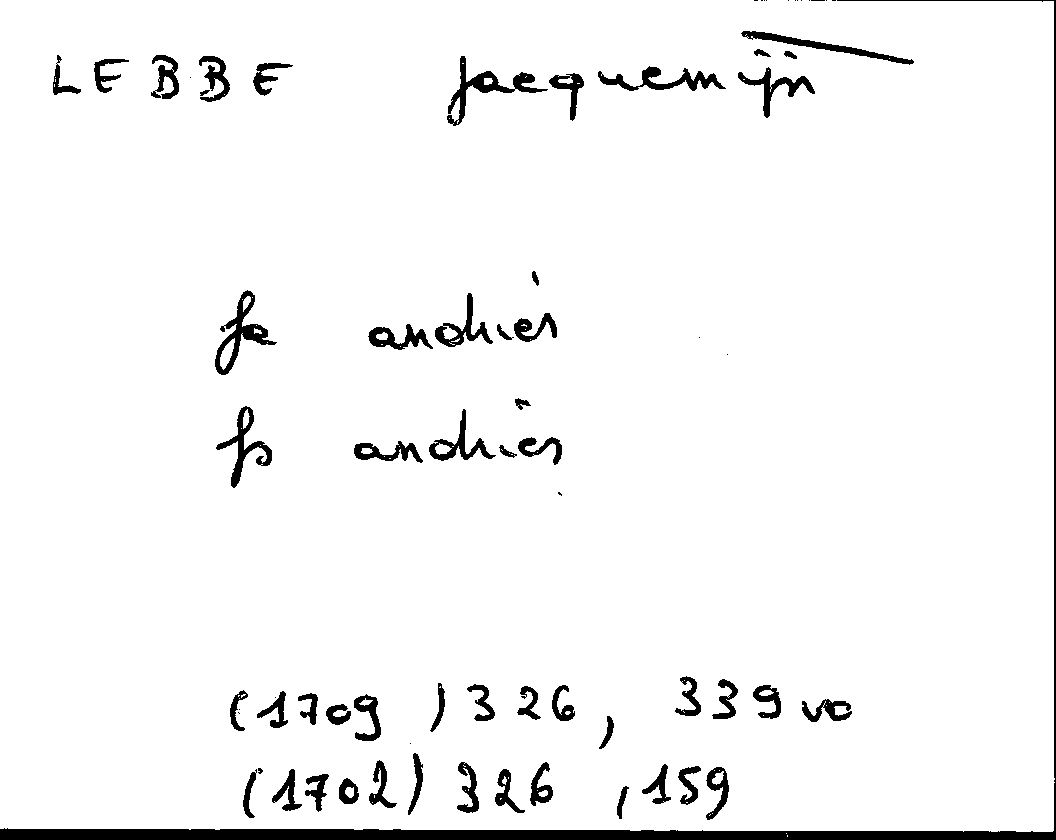 LEBBE Jacquemijn
fa andries
fs andries
(1709) 326, 339 vo
(1702) 326, 159